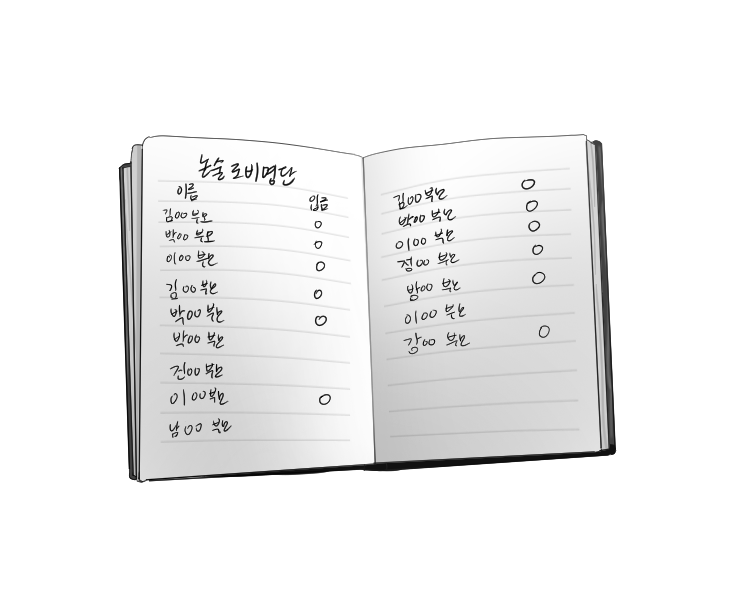 논술 로비명단
이름 입금
김00 부모 0
박00 부모 0
이00 부모 0
김00 부모 0
박00 부모 0
박00 부모
전00 부모
이00 부모 0
남00 부모
김00 부모 0
박00 부모 0
이00 부모 0
정00 부모 0
방00 부모 0
이00 부모
강00 부모 0